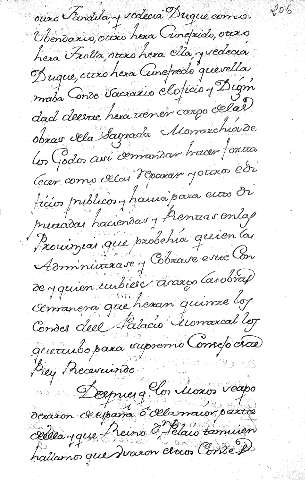 206
otro Fandila, y sedecia Duque como
Vbendario, otro hera Cunefrido, otro
hera Froila, otro hera ella, y sedecia
Duque, otro hera Cunefredo que sella
maba Conde Sacrario el oficio y Digni
dad deeste hera tener cargo delas
obras dela Sagrada Monarchia de
los Godos asi demandar hacer forta
lecer como delas reparar y otros edi
ficios publicos y havia para esto di
putadas haciendas y Rentas en las
Provincias que probehia quien las
Administrase y Cobrase este Con
de y quien tubiese acargo las obras
demanera que heran quinze los
Condes deel Palacio Monarcal los
que tubo para supremo Consejo este
Rey Recesvindo
Despues q.e los Moros se apo
deraron de españa ó dela maior parte
de ella y que Reino Dn Pelaio tamvien
hallamos que usaron estos Condes